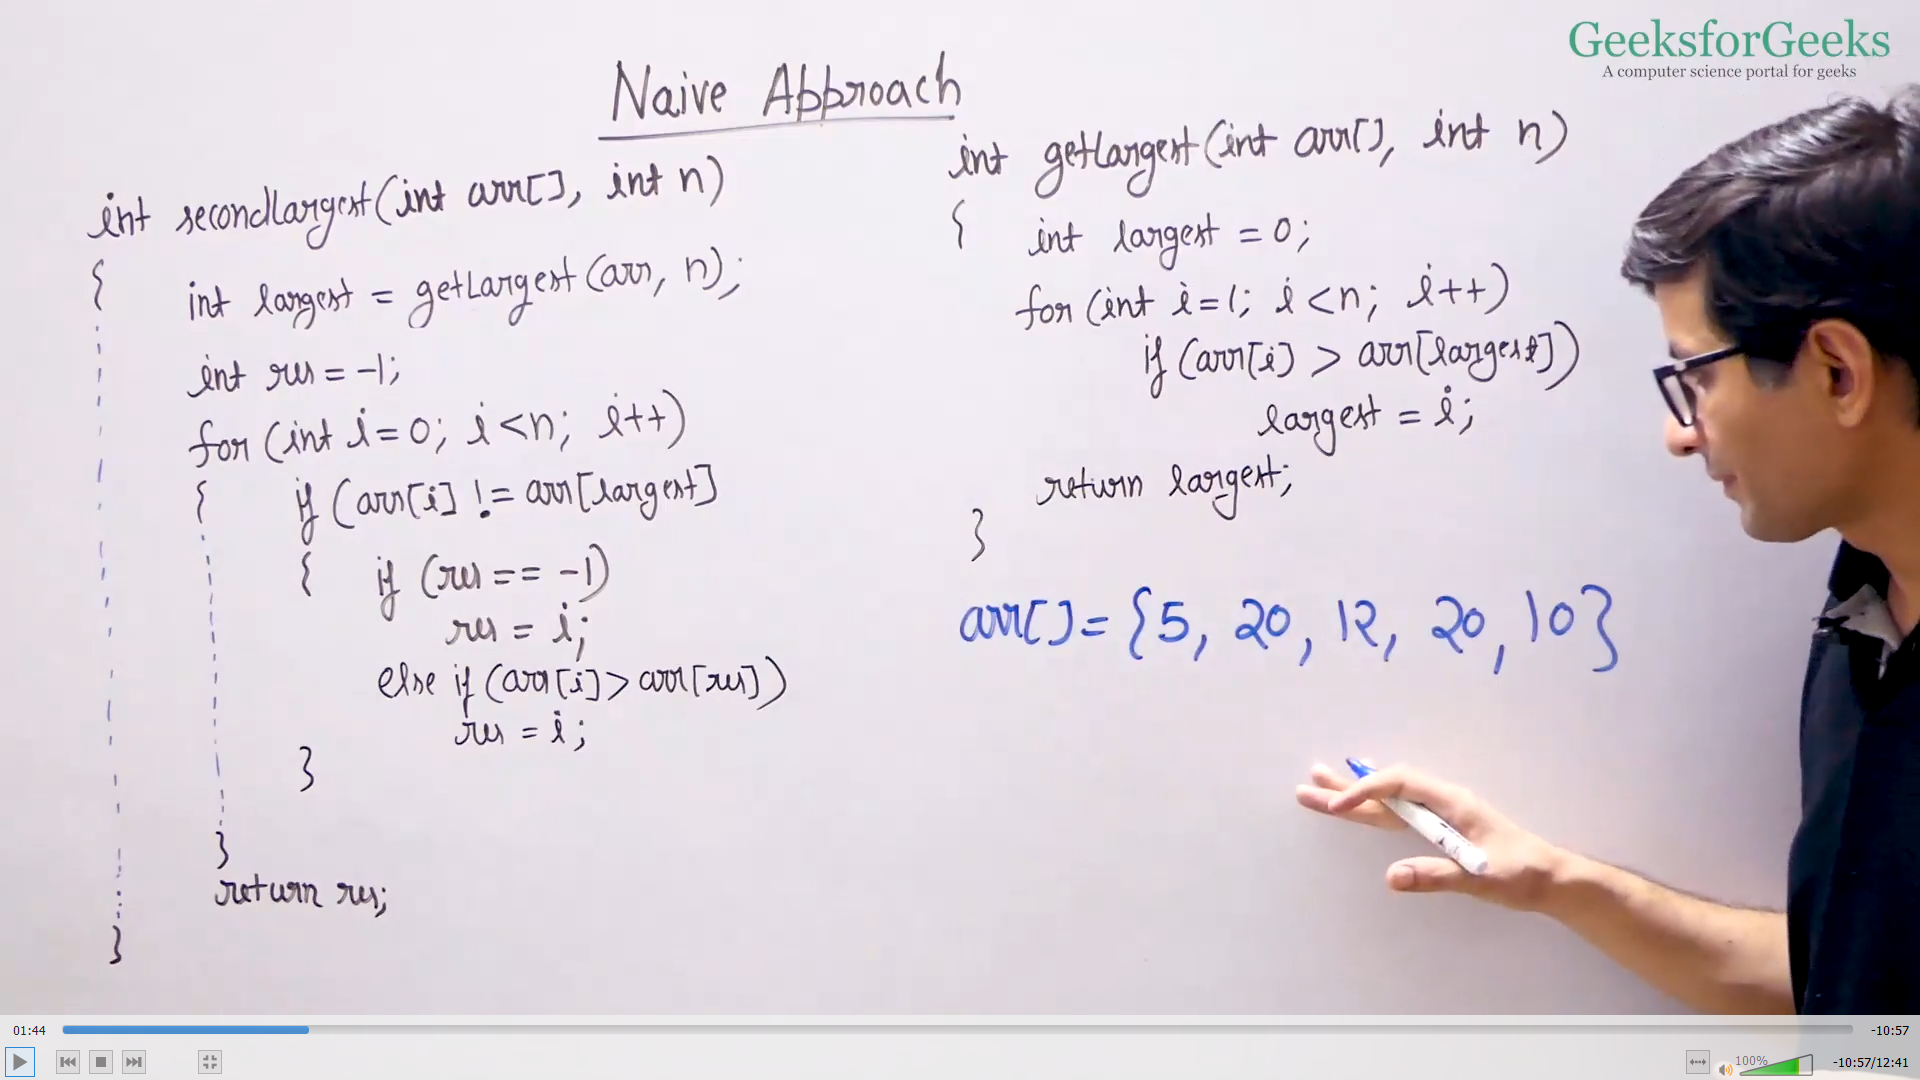 GeeksforGeeks
A computer science portal for geeks
Naive Approach
int secondLargest(int arr[], int n)
{
int largest = getLargest(arr, n);
int res = -1;
for (int i=0; i<n; i++)
{ if (arr[i] != arr[largest]
{ if (res == -1)
res = i;
else if (arr[i] > arr[res])
res = i;
}
}
return res;
}
int getLargest(int arr[], int n)
{ int largest = 0;
for (int i=1; i<n; i++)
if (arr[i] > arr[largest])
largest = i;
return largest;
}
arr[] = {5, 20, 12, 20, 10}
01:44
-10:57
100%
-10:57/12:41